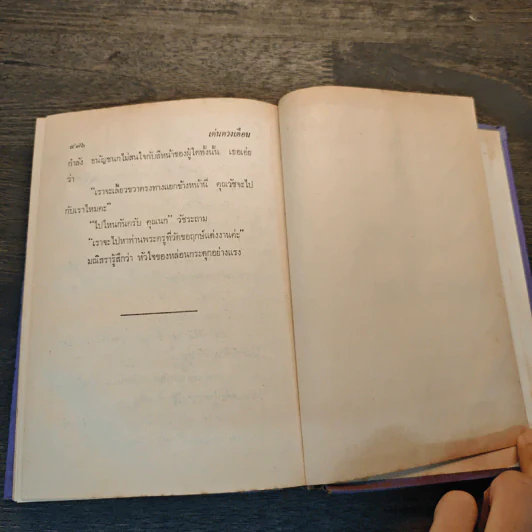 ๔๗๖
เด่นดวงเดือน
กำลัง ธนัญชนกไม่สนใจกับสีหน้าของผู้ใดทั้งนั้น เธอเอ่ย
ว่า
"เราจะเลี้ยวขวาตรงทางแยกข้างหน้านี้ คุณวัชจะไป
กับเราไหมคะ"
"ไปไหนกันครับ คุณนก" วัชระถาม
"เราจะไปหาท่านพระครูที่วัดขอฤกษ์แต่งงานค่ะ"
มณิสรารู้สึกว่า หัวใจของหล่อนกระตุกอย่างแรง